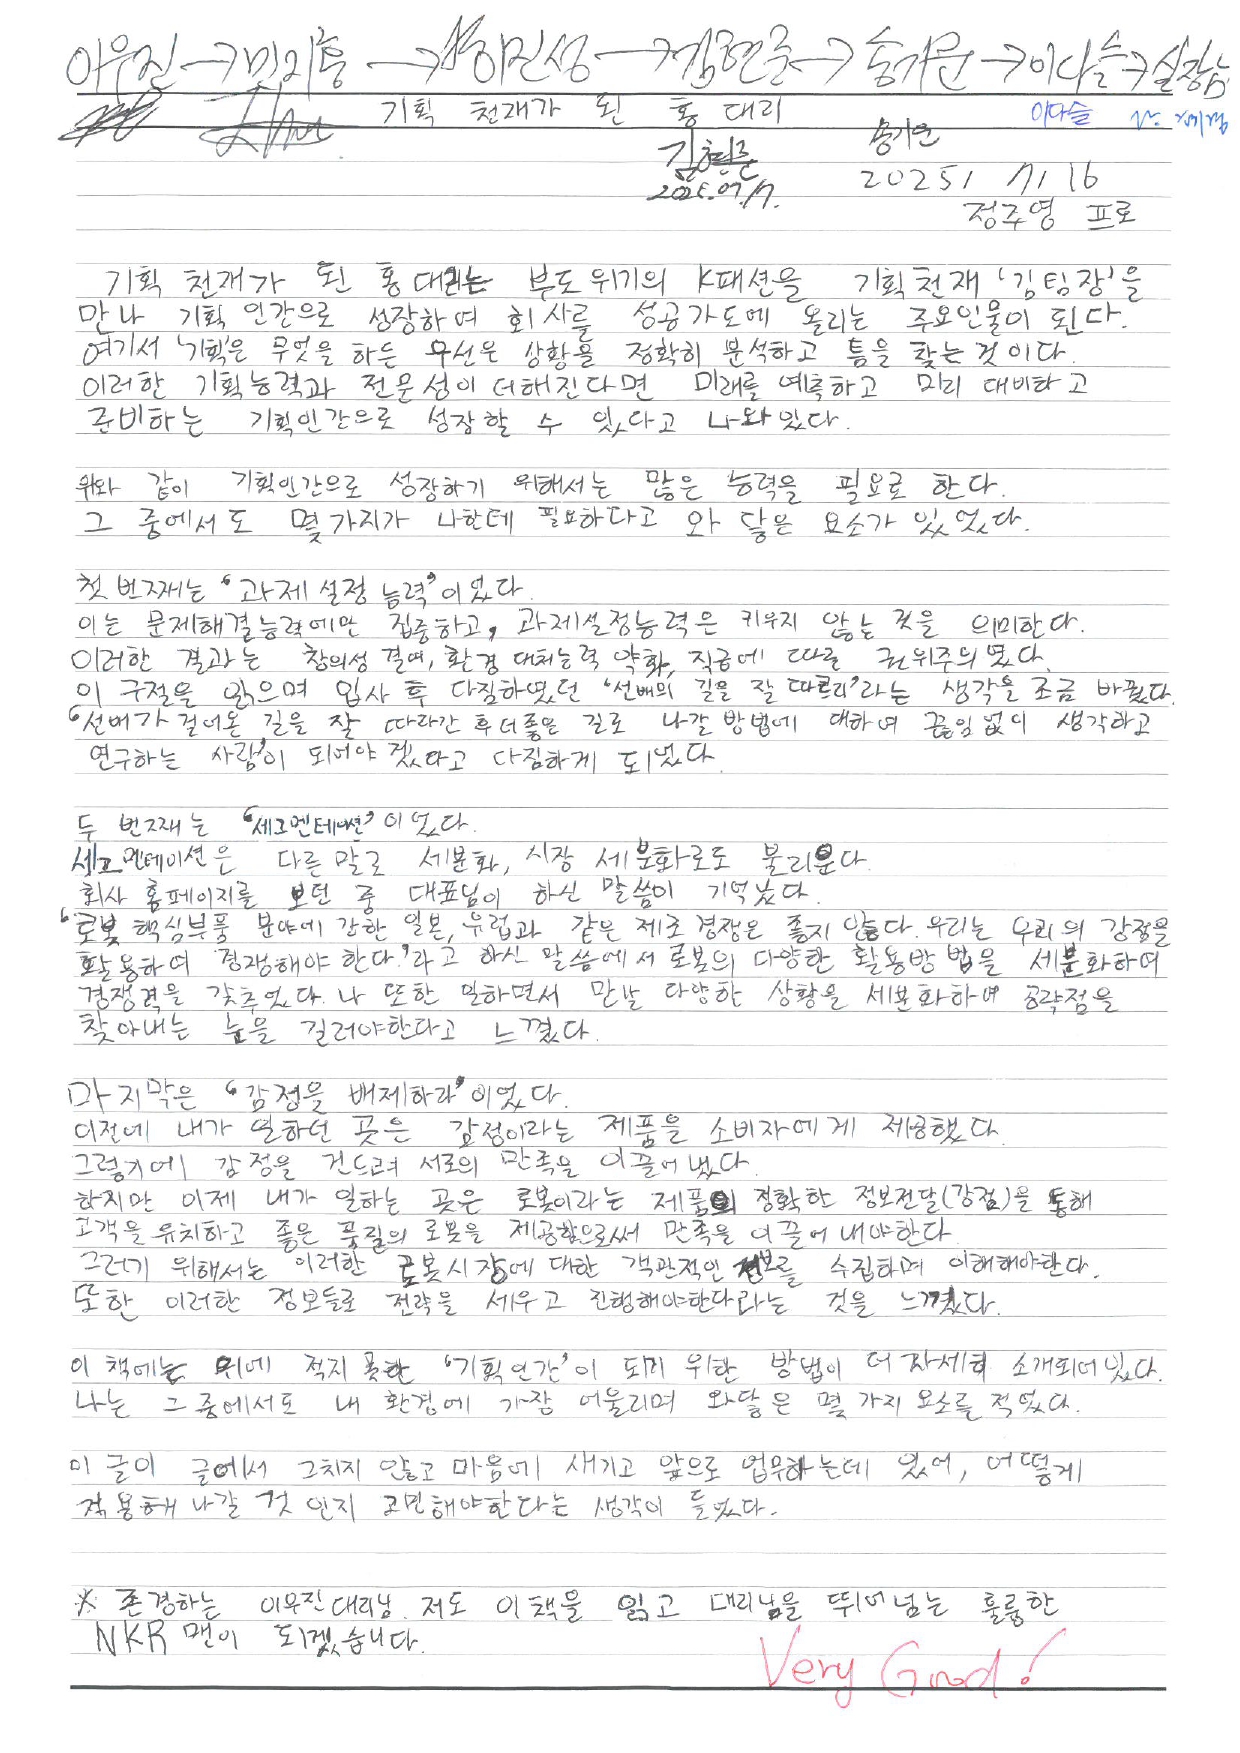 이우진 → 민지홍 → 하진성 → 김현준 → 송기윤 → 이다슬 → 실장님
기획 천재가 된 홍 대리
이다슬
김현준
송기윤
2025.07.17.
2025. 7. 16
정주영 프로
기획 천재가 된 홍 대리는 부도위기의 K패션을 기획천재 '김팀장'을
만나 기획 인간으로 성장하여 회사를 성공가도에 올리는 주요인물이 된다.
여기서 '기획'은 무엇을 하든 우선은 상황을 정확히 분석하고 틈을 찾는 것이다.
이러한 기획능력과 전문성이 더해진다면 미래를 예측하고 미리 대비하고
준비하는 기획인간으로 성장할 수 있다고 나와있다.
위와 같이 기획인간으로 성장하기 위해서는 많은 능력을 필요로 한다.
그 중에서도 몇가지가 나한테 필요하다고 와 닿은 요소가 있었다.
첫 번째는 '과제 설정 능력'이었다.
이는 문제해결능력에만 집중하고, 과제설정능력은 키우지 않는 것을 의미한다.
이러한 결과는 창의성 결여, 환경 대처능력 약화, 직급에 따른 권위주의였다.
이 구절을 읽으며 입사 후 다짐하였던 '선배의 길을 잘 따르리'라는 생각을 조금 바꿨다.
'선배가 걸어온 길을 잘 따라간 후 더좋은 길로 나갈 방법에 대하여 끊임없이 생각하고
연구하는 사람'이 되어야 겠다고 다짐하게 되었다.
두 번째는 '세그멘테이션'이었다.
세그멘테이션은 다른 말로 세분화, 시장 세분화로도 불리운다.
회사 홈페이지를 보던 중 대표님이 하신 말씀이 기억났다.
'로봇 핵심부품 분야에 강한 일본, 유럽과 같은 제조 경쟁은 좋지 않다. 우리는 우리의 강점을
활용하여 경쟁해야 한다.'라고 하신 말씀에서 로봇의 다양한 활용방법을 세분화하여
경쟁력을 갖추었다. 나 또한 일하면서 만날 다양한 상황을 세분화하여 공략점을
찾아내는 눈을 길러야한다고 느꼈다.
마지막은 '감정을 배제하라'이었다.
이전에 내가 일하던 곳은 감정이라는 제품을 소비자에게 제공했다.
그렇기에 감정을 건드려 서로의 만족을 이끌어 냈다.
하지만 이제 내가 일하는 곳은 로봇이라는 제품의 정확한 정보전달(강점)을 통해
고객을 유치하고 좋은 품질의 로봇을 제공함으로써 만족을 이끌어 내야한다.
그러기 위해서는 이러한 로봇시장에 대한 객관적인 정보를 수집하며 이해해야한다.
또한 이러한 정보들로 전략을 세우고 진행해야한다라는 것을 느꼈다.
이 책에는 위에 적지 못한 '기획인간'이 되기 위한 방법이 더 자세히 소개되어있다.
나는 그 중에서도 내 환경에 가장 어울리며 와닿은 몇 가지 요소를 적었다.
이 글이 글에서 그치지 않고 마음에 새기고 앞으로 업무하는데 있어, 어떻게
적용해 나갈 것 인지 고민해야한다는 생각이 들었다.
※ 존경하는 이우진대리님. 저도 이책을 읽고 대리님을 뛰어넘는 훌륭한
NKR 맨이 되겠습니다.
Very Good!